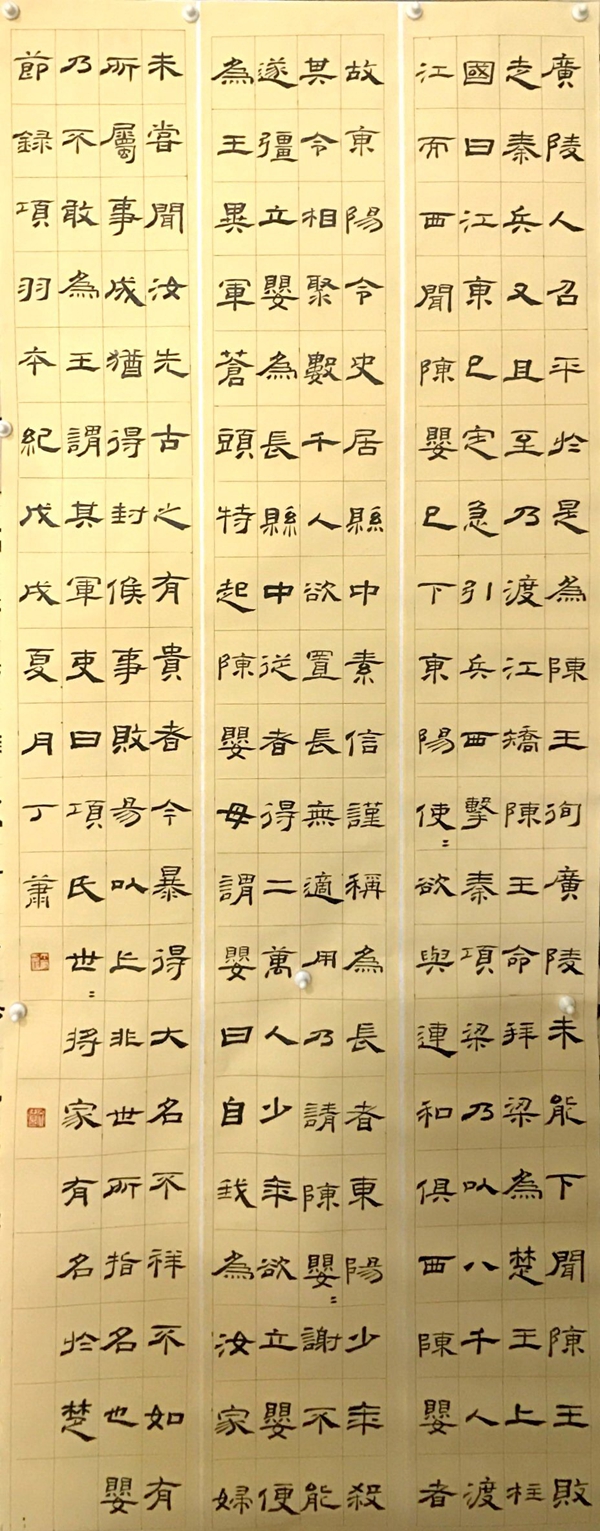 廣陵人召平於是為陳王徇廣陵未能下聞陳王敗
走秦兵又且至乃渡江矯陳王命拜梁為楚王上柱
國曰江東已定急引兵西擊秦項梁乃以八千人渡
江而西聞陳嬰已下東陽使〻欲與連和俱西陳嬰者
故東陽令史居縣中素信謹稱為長者東陽少年殺
其令相聚數千人欲置長無適用乃請陳嬰〻謝不能
遂彊立嬰為長縣中從者得二萬人少年欲立嬰便
為王異軍蒼頭特起陳嬰母謂嬰曰自我為汝家婦
未嘗聞汝先古之有貴者今暴得大名不祥不如有
所屬事成猶得封侯事敗易以亡非世所指名也嬰
乃不敢為王謂其軍吏曰項氏世〻將家有名於楚
節錄項羽本紀戊戌夏月丁蕭